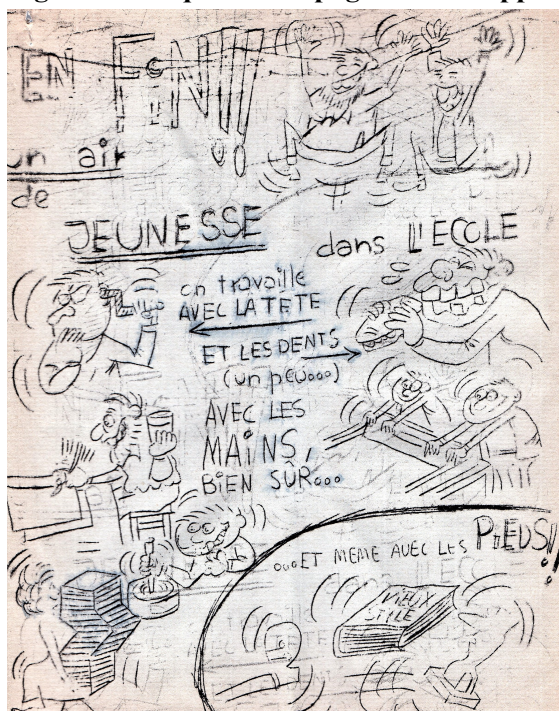 EN FiN!!
un air
de
JEUNESSE
dans L'ECOLE
on travaille
AVEC LA TETE
ET LES DENTS
(un peu...)
AVEC LES
MAiNS,
BiEN SÛR...
...ET MEME AVEC LES PiEDS!!
VIEUX
STYLE